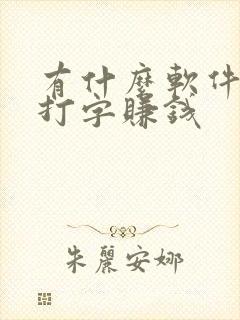 有什麼軟件
打字賺錢
朱麗安娜